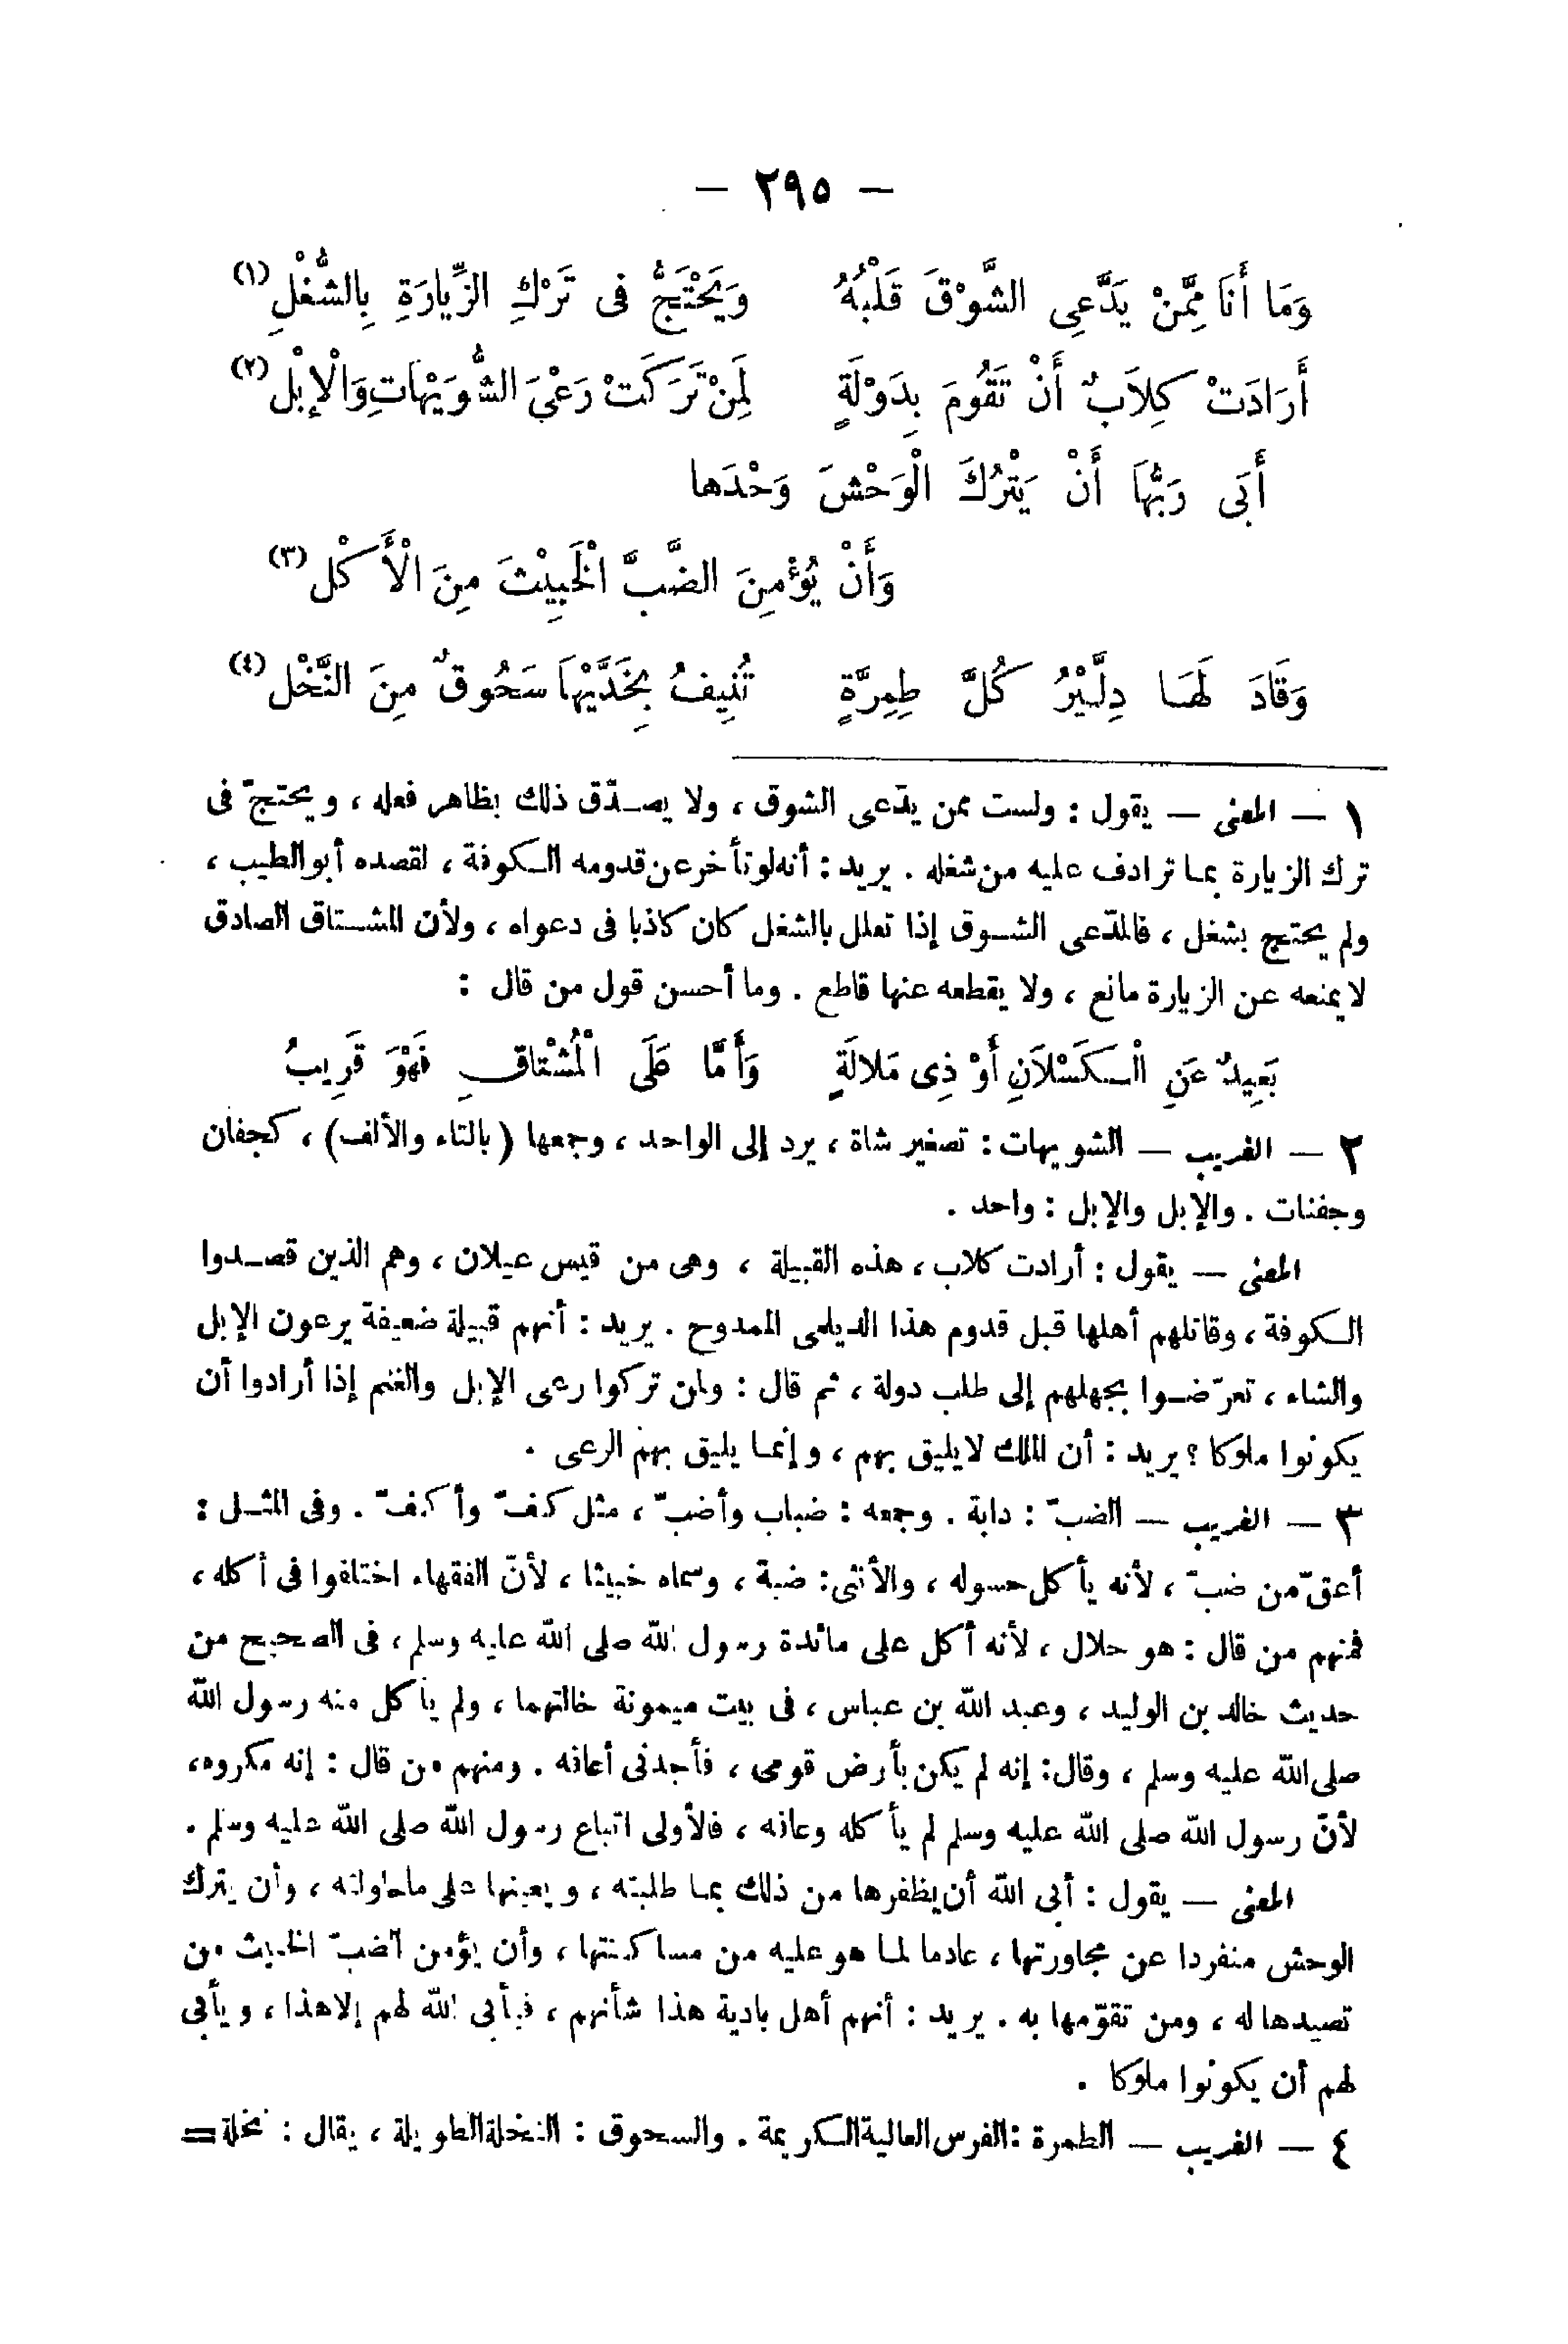 — ٢٩٥ —
وَمَا أَنَا مِمَّنْ يَدَّعِى الشَّوْقَ قَلْبُهُ وَيَحْتَجُّ فى تَرْكِ الزِّيارَةِ بِالشُّغْلِ (١)
أَرَادَتْ كِلاَبٌ أَنْ تَقُومَ بِدَوْلَةٍ لِمَنْ تَرَكَتْ رَعْىَ الشُّوَيْهَاتِ وَالْإِبْلِ (٢)
أَبَى رَبُّهَا أَنْ يَتْرُكَ الْوَحْشَ وَحْدَها
وَأَنْ يُؤْمِنَ الضَّبَّ الْخَبِيْثَ مِنَ الْأَكْلِ (٣)
وَقَادَ لَهَا دِلَّيْرُ كُلَّ طِمِرَّةٍ تُنِيفُ بِخَدَّيْهَا سَحُوقٌ مِنَ النَّخْلِ (٤)
١ — المعنى — يقول : ولست ممن يدّعى الشوق ، ولا يصدّق ذلك بظاهر فعله ، ويحتجّ فى
ترك الزيارة بما ترادف عليه من شغله . يريد : أنه لو تأخر عن قدومه الكوفة ، لقصده أبو الطيب ،
ولم يحتج بشغل ، فالمدّعى الشوق إذا تعلل بالشغل كان كاذبا فى دعواه ، ولأن المشتاق الصادق
لا يمنعه عن الزيارة مانع ، ولا يقطعه عنها قاطع . وما أحسن قول من قال :
بَعِيدٌ عَنِ الْكَسْلَانِ أَوْ ذِى مَلالَةٍ وَأَمَّا عَلَى الْمُشْتاقِ فَهْوَ قَرِيبُ
٢ — الغريب — الشويهات : تصغير شاة ، يرد إلى الواحد ، وجمعها (بالتاء والألف) ، كجفان
وجفنات . والإبل والإبل : واحد .
المعنى — يقول : أرادت كلاب ، هذه القبيلة ، وهى من قيس عيلان ، وهم الذين قصدوا
الكوفة ، وقاتلهم أهلها قبل قدوم هذا الديلمى الممدوح . يريد : أنهم قبيلة ضعيفة يرعون الإبل
والشاء ، تعرّضوا بجهلهم إلى طلب دولة ، ثم قال : ولمن تركوا رعى الإبل والغنم إذا أرادوا أن
يكونوا ملوكا ؟ يريد : أن الملك لا يليق بهم ، وإنما يليق بهم الرعى .
٣ — الغريب — الضبّ : دابة . وجمعه : ضباب وأضبّ ، مثل كفّ وأكفّ . وفى المثل :
أعقّ من ضبّ ، لأنه يأكل حسوله ، والأنثى : ضبة ، وسماه خبيثا ، لأنّ الفقهاء اختلفوا فى أكله ،
فمنهم من قال : هو حلال ، لأنه أكل على مائدة رسول الله صلى الله عليه وسلم ، فى الصحيح من
حديث خالد بن الوليد ، وعبد الله بن عباس ، فى بيت ميمونة خالتهما ، ولم يأكل منه رسول الله
صلى الله عليه وسلم ، وقال : إنه لم يكن بأرض قومى ، فأجدنى أعافه . ومنهم من قال : إنه مكروه،
لأنّ رسول الله صلى الله عليه وسلم لم يأكله وعافه ، فالأولى اتباع رسول الله صلى الله عليه وسلم .
المعنى — يقول : أبى الله أن يظفرها من ذلك بما طلبته ، ويعينها على ما حاولته ، وأن يترك
الوحش منفردا عن مجاورتها ، عادما لما هو عليه من مساكنتها ، وأن يؤمن الضبّ الخبيث من
تصيدها له ، ومن تقوّمها به . يريد : أنهم أهل بادية هذا شأنهم ، فيأبى الله لهم إلا هذا ، ويأبى
لهم أن يكونوا ملوكا .
٤ — الغريب — الطمرة : الفرس العالية الكريمة . والسحوق : النخلة الطويلة ، يقال : نخلة =